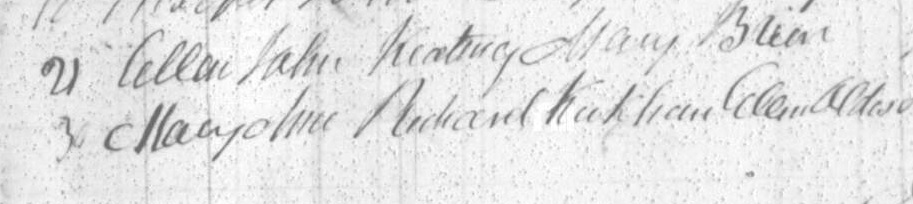 21 Ellen John Keating Mary Brien
Mary Anne Richard Kirkham Ellen